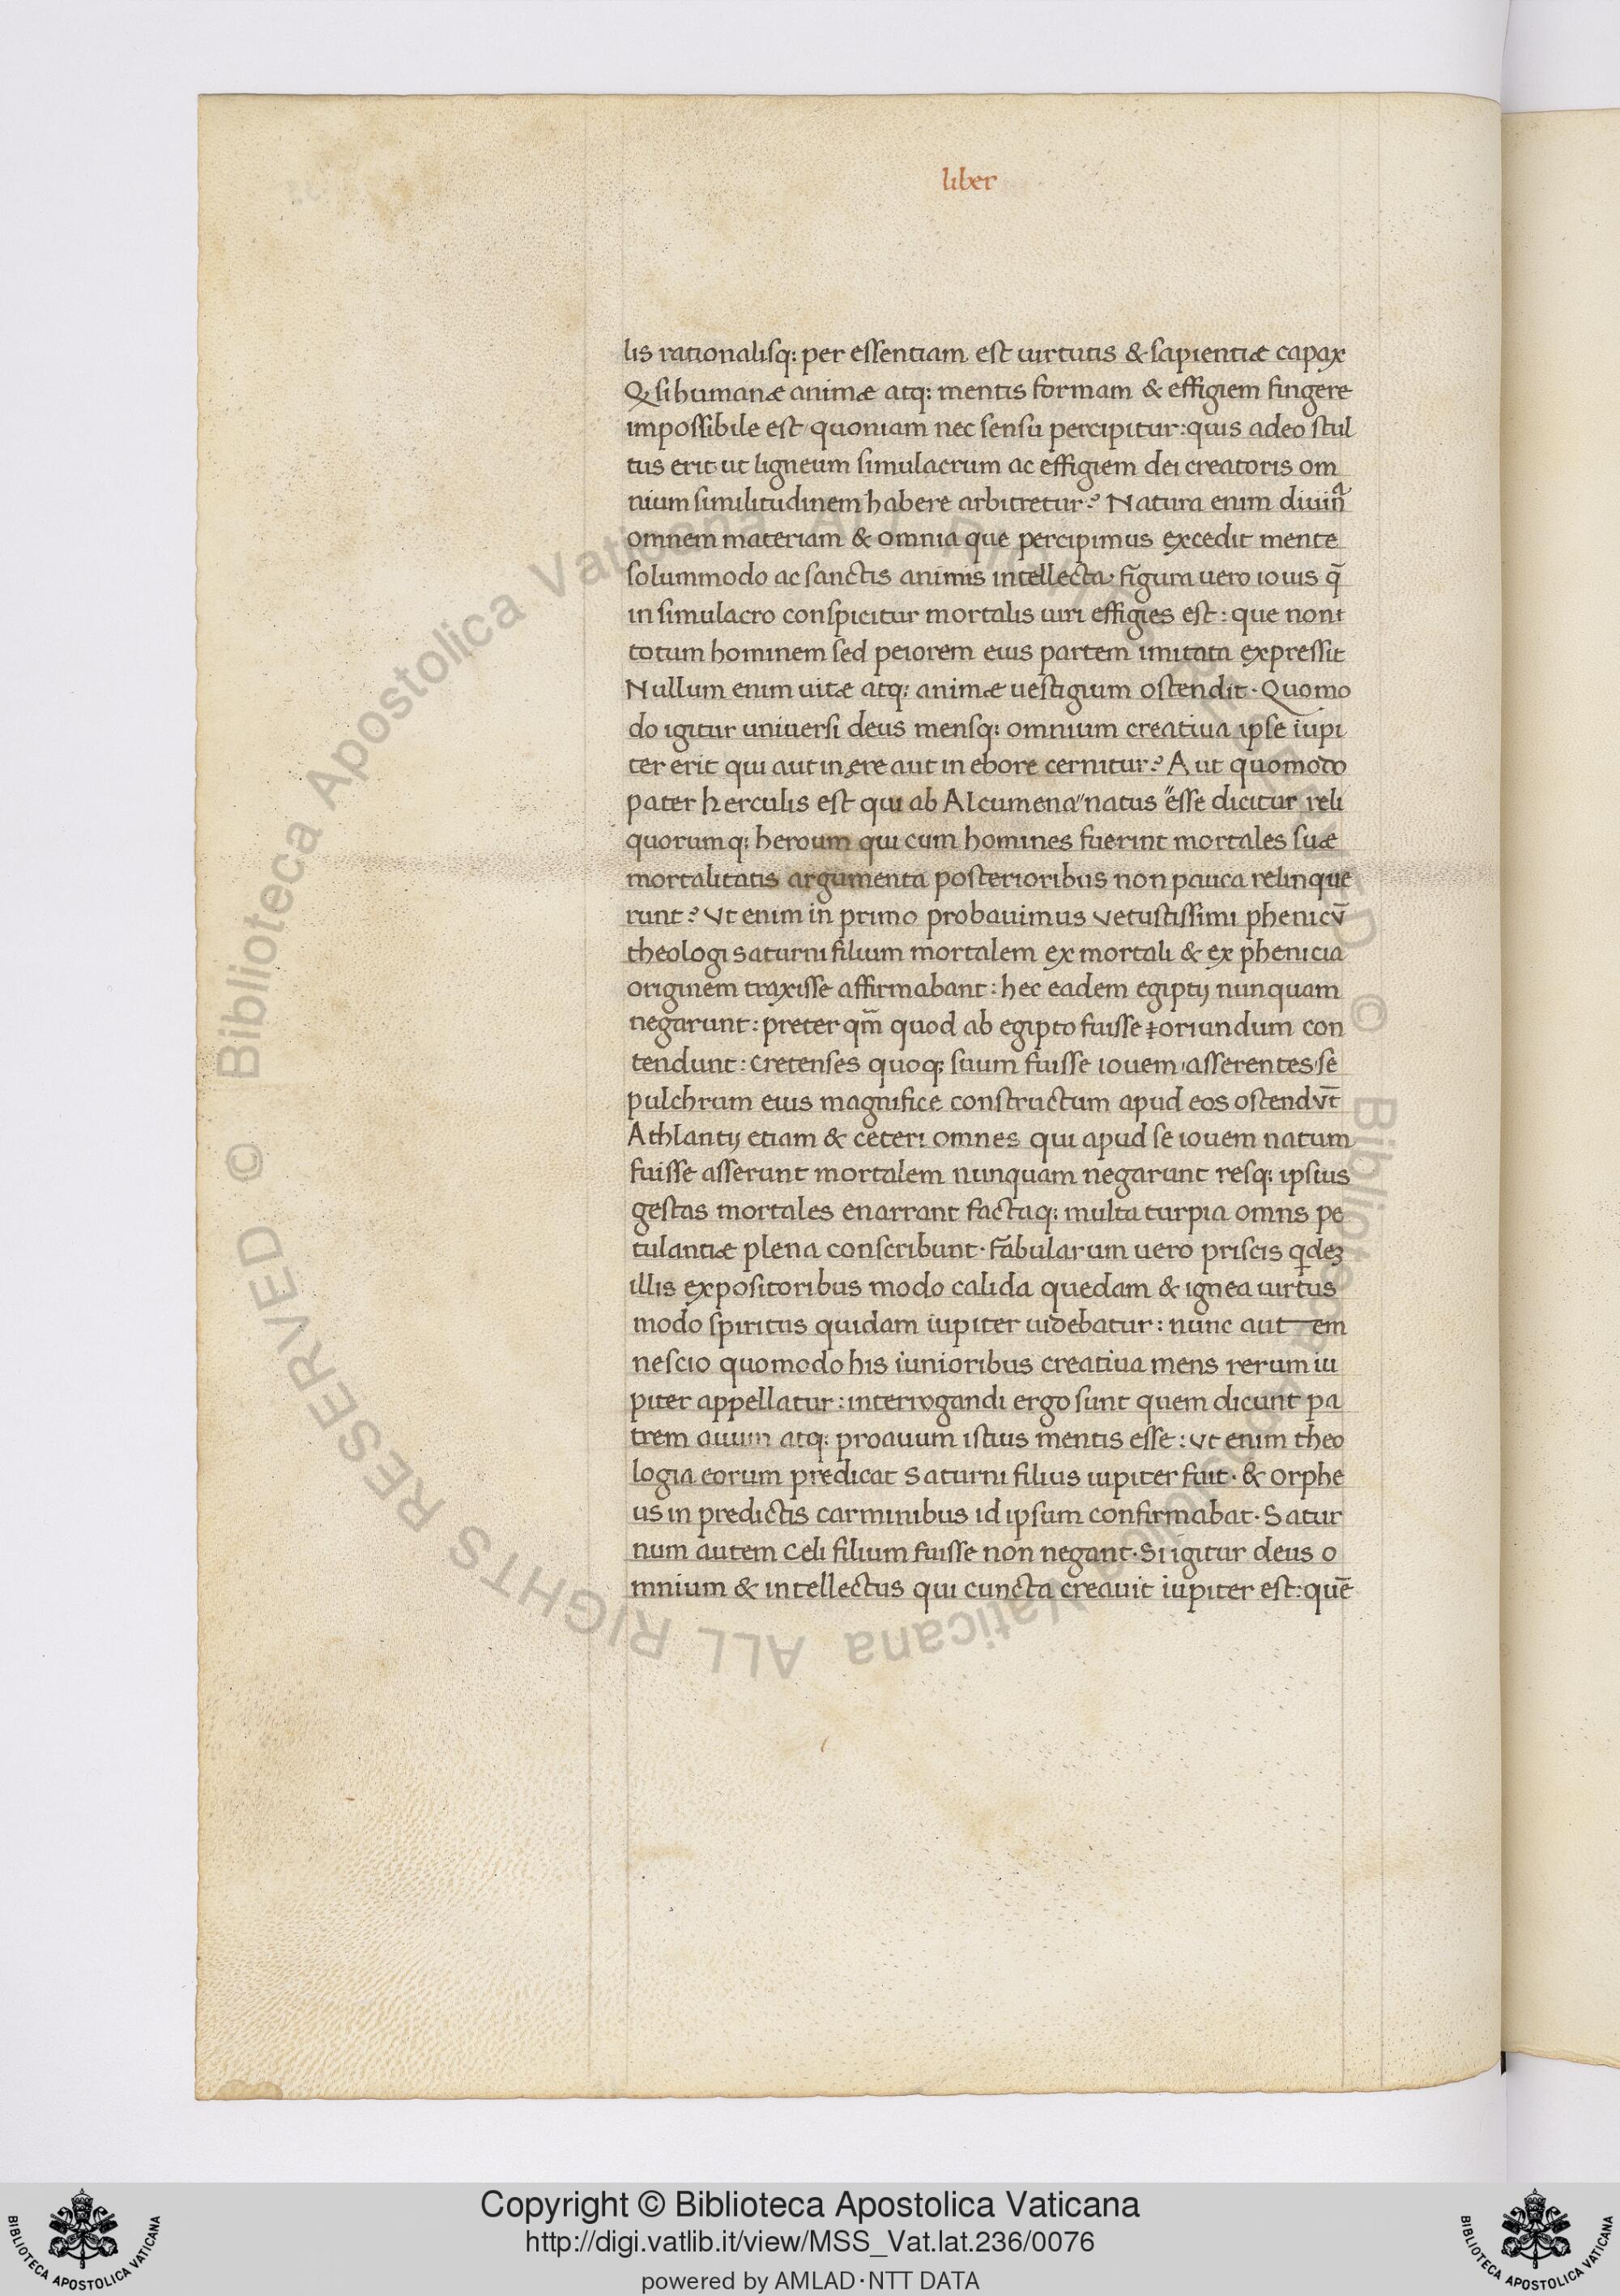 liber
lis rationalisq: per essentiam est uirtutis & sapientiæ capax
Q si humanæ animæ atq: mentis formam & effigiem fingere
impossibile est quoniam nec sensu percipitur: quis adeo stul
tus erit ut ligneum simulacrum ac effigiem dei creatoris om
nium similitudinem habere arbitretur? Natura enim diuinª
omnem materiam & omnia que percipimus excedit mente
solummodo ac sanctis animis intellecta· figura uero iouis q̄
in simulacro conspicitur mortalis uiri effigies est: que non
totum hominem sed peiorem eius partem imitata expressit
Nullum enim uitæ atq: animæ uestigium ostendit· Quomo
do igitur universi deus mensq: omnium creatiua ipse iupi
ter erit qui aut in ęre aut in ebore cernitur? Aut quomodo
pater herculis est qui ab Alcumena" natus "esse dicitur reli
quorumq: heroum qui cum homines fuerint mortales suæ
mortalitatis argumenta posterioribus non pauca relinque
runt? Vt enim in primo probauimus vetustissimi phenicv̄
theologi saturni filium mortalem ex mortali & ex phenicia
originem traxisse affirmabant: hec eadem egiptij nunquam
negarunt: preter qm̄ quod ab egipto fuisse oriundum con
tendunt: cretenses quoq: suum fuisse iouem, asserentes, se
pulchrum eius magnifice constructum apud eos ostendv̄t
Athlantij etiam & ceteri omnes qui apud se iouem natum
fuisse asserunt mortalem nunquam negarunt resq: ipsius
gestas mortales enarrant factaq: multa turpia omnis pe
tulantiæ plena conscribunt· fabularum uero priscis qdeꝫ
illis expositoribus modo calida quedam & ignea uirtus
modo spiritus quidam iupiter uidebatur: nunc autem
nescio quomodo his iunioribus creatiua mens rerum iu
piter appellatur: interrogandi ergo sunt quem dicunt pa
trem auum atq: proauum istius mentis esse: vt enim theo
logia eorum predicat saturni filius iupiter fuit· & orphe
us in predictis carminibus id ipsum confirmabat· Satur
num autem celi filium fuisse non negant· Si igitur deus o
mnium & intellectus qui cuncta creauit iupiter est: quē
© Biblioteca Apostolica Vaticana ALL RIGHTS RESERVED © Biblioteca Apostolica Vaticana ALL RIGHTS RESERVED
Copyright © Biblioteca Apostolica Vaticana
http://digi.vatlib.it/view/MSS_Vat.lat.236/0076
powered by AMLAD·NTT DATA
BIBLIOTECA APOSTOLICA VATICANA
BIBLIOTECA APOSTOLICA VATICANA